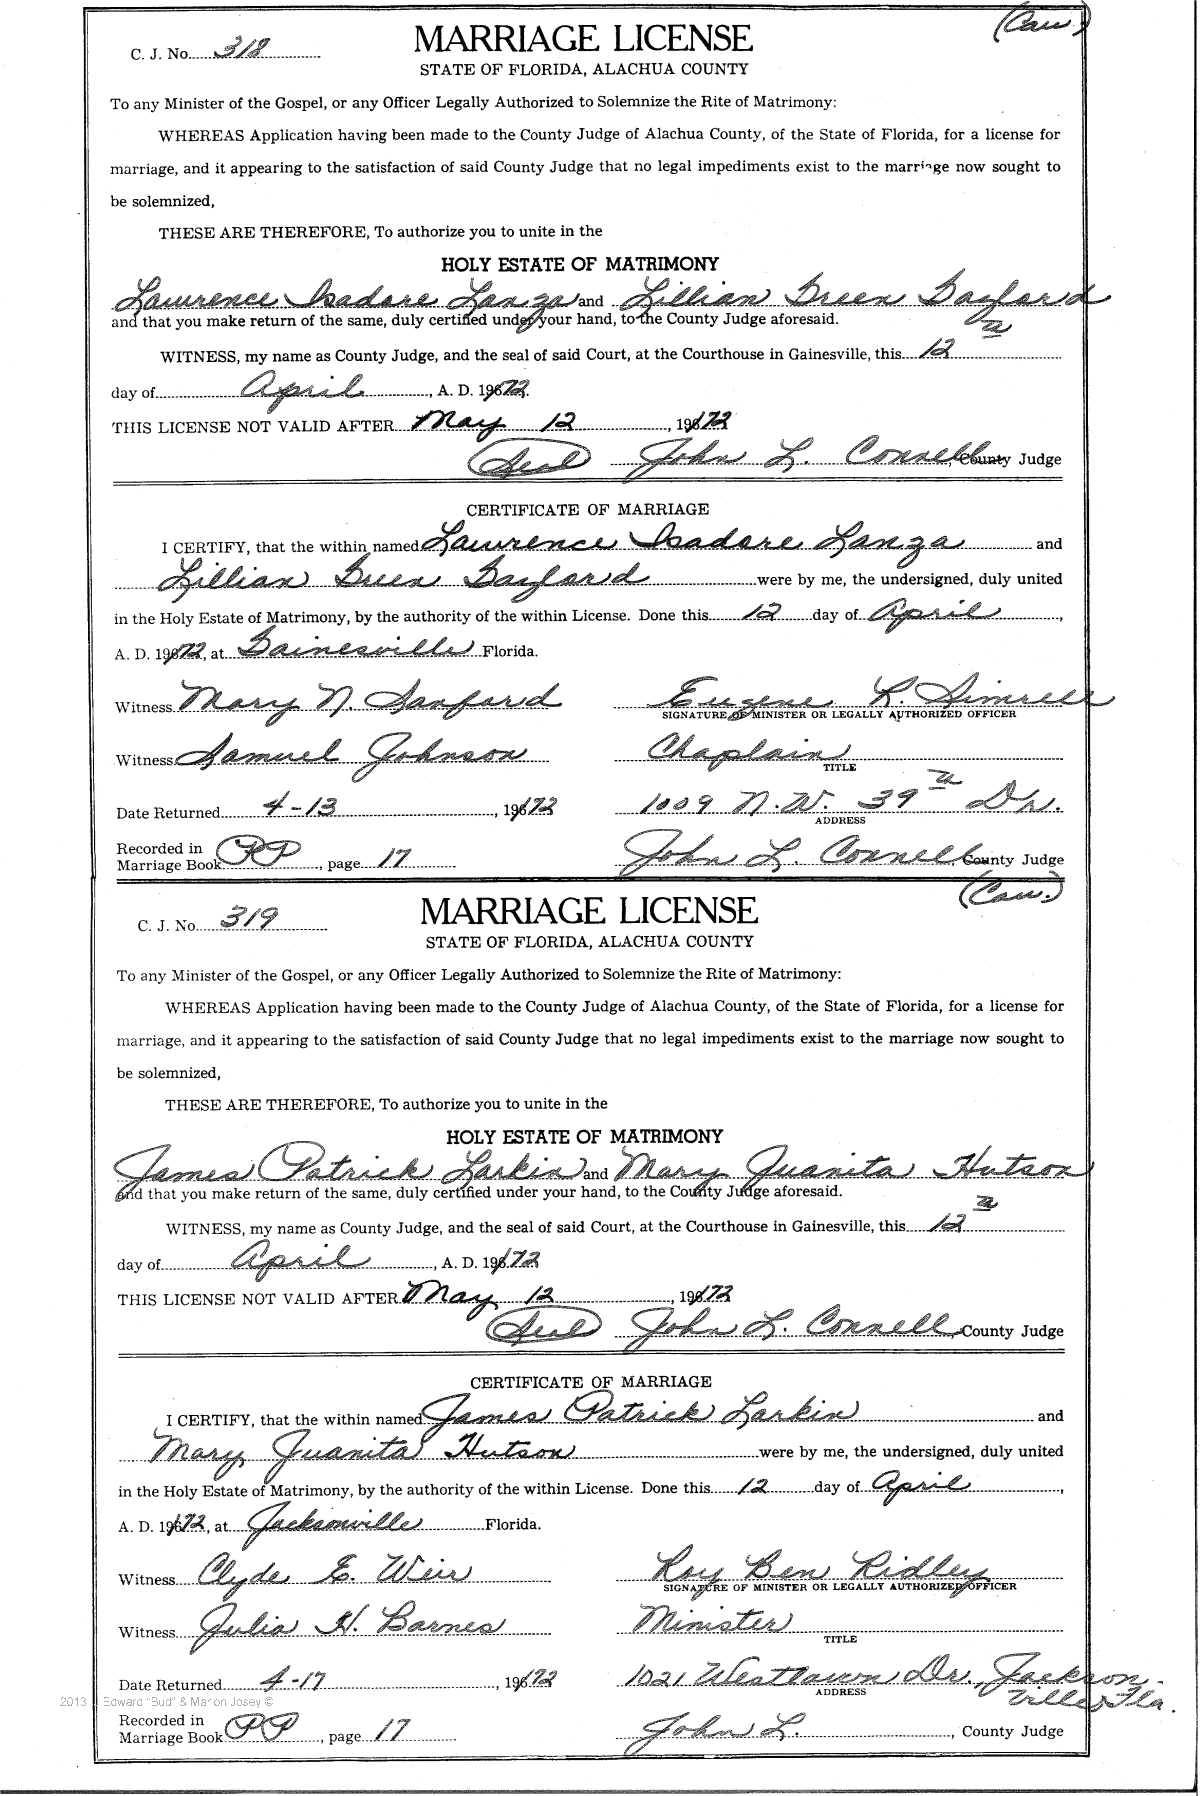 (Cau.)
C. J. No. 318
MARRIAGE LICENSE
STATE OF FLORIDA, ALACHUA COUNTY
To any Minister of the Gospel, or any Officer Legally Authorized to Solemnize the Rite of Matrimony:
WHEREAS Application having been made to the County Judge of Alachua County, of the State of Florida, for a license for
marriage, and it appearing to the satisfaction of said County Judge that no legal impediments exist to the marriage now sought to
be solemnized,
THESE ARE THEREFORE, To authorize you to unite in the
HOLY ESTATE OF MATRIMONY
Lawrence Isadore Lanza and Lillian Green Gaylord
and that you make return of the same, duly certified under your hand, to the County Judge aforesaid.
WITNESS, my name as County Judge, and the seal of said Court, at the Courthouse in Gainesville, this 12
day of April, A. D. 1972.
THIS LICENSE NOT VALID AFTER May 12, 1972
(Seal) John L. Connell, County Judge
CERTIFICATE OF MARRIAGE
I CERTIFY, that the within named Lawrence Isadore Lanza and
Lillian Green Gaylord were by me, the undersigned, duly united
in the Holy Estate of Matrimony, by the authority of the within License. Done this 12 day of April,
A. D. 1972, at Gainesville Florida.
Witness Mary N. Sanford Eugene L. Simrell
SIGNATURE OF MINISTER OR LEGALLY AUTHORIZED OFFICER
Witness Samuel Johnson Chaplain
TITLE
Date Returned 4-13, 1972 1009 N.W. 39th Dr.
ADDRESS
Recorded in
Marriage Book PP, page 17 John L. Connell County Judge
(Cau.)
C. J. No. 319
MARRIAGE LICENSE
STATE OF FLORIDA, ALACHUA COUNTY
To any Minister of the Gospel, or any Officer Legally Authorized to Solemnize the Rite of Matrimony:
WHEREAS Application having been made to the County Judge of Alachua County, of the State of Florida, for a license for
marriage, and it appearing to the satisfaction of said County Judge that no legal impediments exist to the marriage now sought to
be solemnized,
THESE ARE THEREFORE, To authorize you to unite in the
HOLY ESTATE OF MATRIMONY
James Patrick Larkin and Mary Juanita Hutson
and that you make return of the same, duly certified under your hand, to the County Judge aforesaid.
WITNESS, my name as County Judge, and the seal of said Court, at the Courthouse in Gainesville, this 12
day of April, A. D. 1972
THIS LICENSE NOT VALID AFTER May 12, 1972
(Seal) John L. Connell, County Judge
CERTIFICATE OF MARRIAGE
I CERTIFY, that the within named James Patrick Larkin and
Mary Juanita Hutson were by me, the undersigned, duly united
in the Holy Estate of Matrimony, by the authority of the within License. Done this 12 day of April,
A. D. 1972, at Jacksonville Florida.
Witness Clyde E. Weir Roy Ben Ridley
SIGNATURE OF MINISTER OR LEGALLY AUTHORIZED OFFICER
Witness Julia H. Barnes Minister
TITLE
Date Returned 4-17, 1972 1021 Westlawn Dr., Jackson-
ville, Fla.
ADDRESS
2013 Edward "Bud" & Marion Josey ©
Recorded in
Marriage Book PP, page 17 John L., County Judge